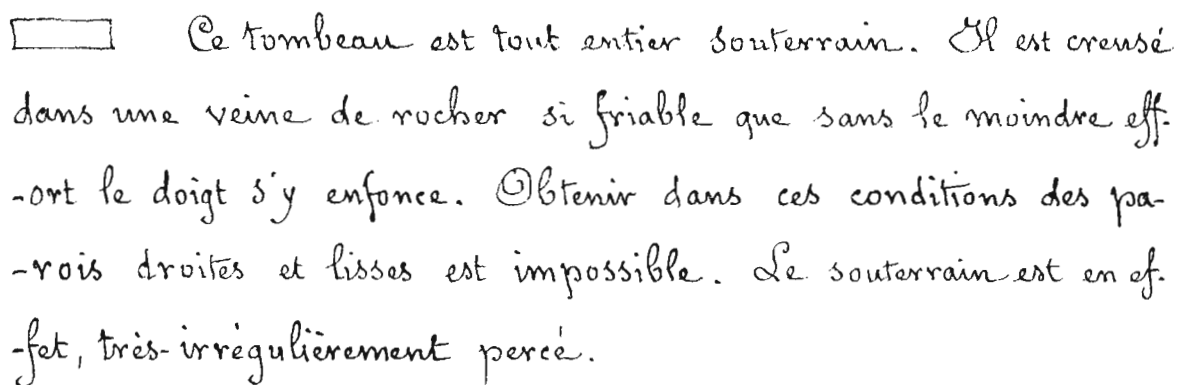 Ce tombeau est tout entier souterrain. Il est creusé
dans une veine de rocher si friable que sans le moindre eff-
-ort le doigt s'y enfonce. Obtenir dans ces conditions des pa-
-rois droites et lisses est impossible. Le souterrain est en ef-
-fet, très-irrégulièrement percé.